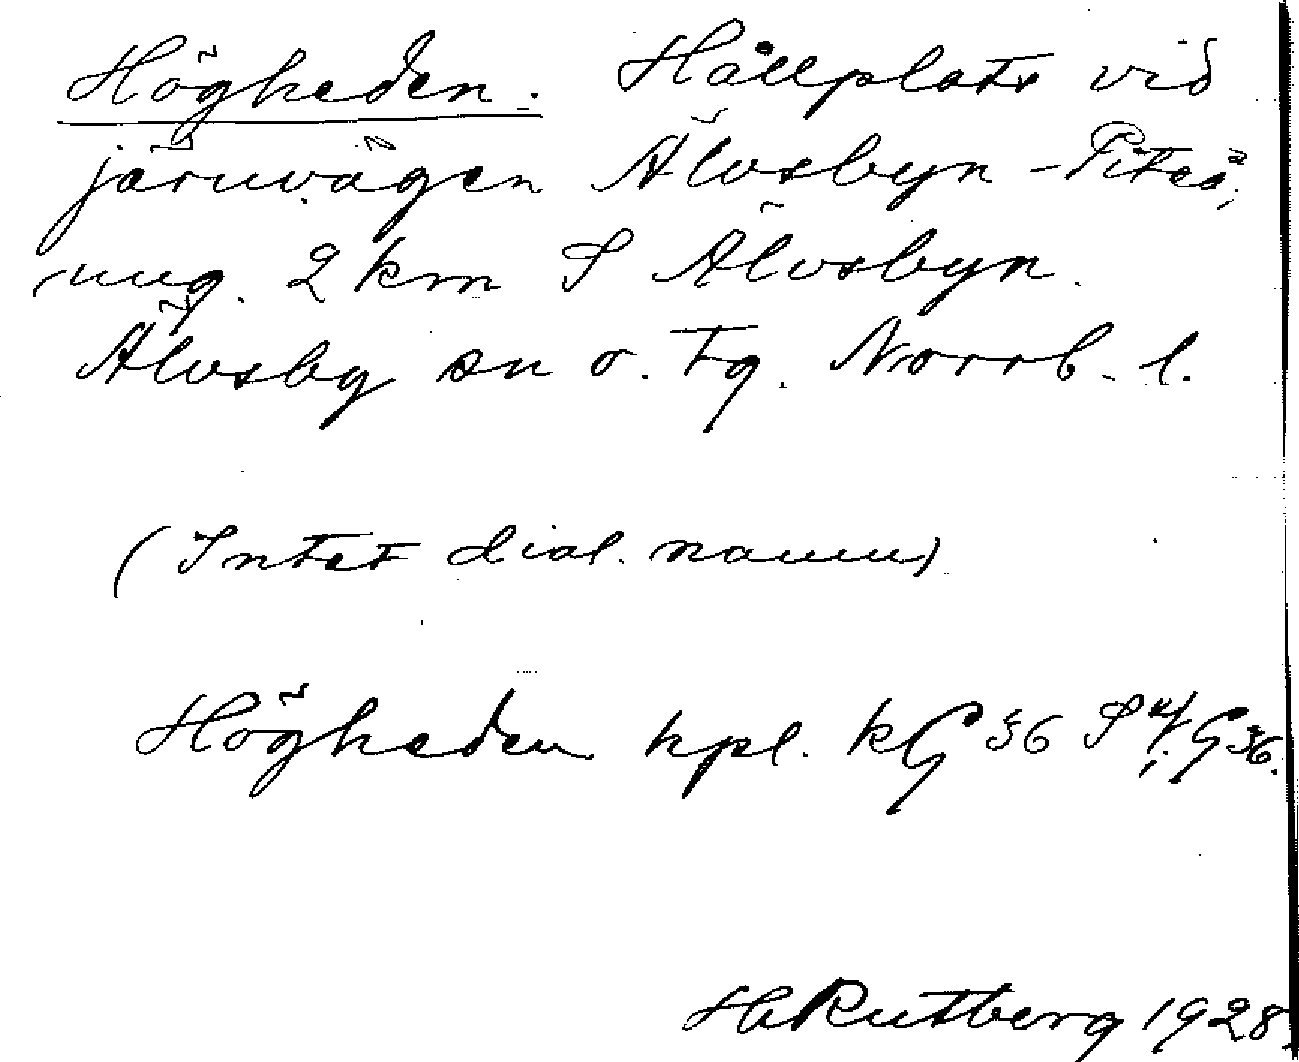 Högheden. Hållplats vid
järnvägen Älvsbyn - Piteå,
ung. 2 km S Älvsbyn.
Älvsby sn o. tg. Norrb. l.
(Intet dial. namn)
Högheden hpl. kG 36 S
H Rutberg 1928.